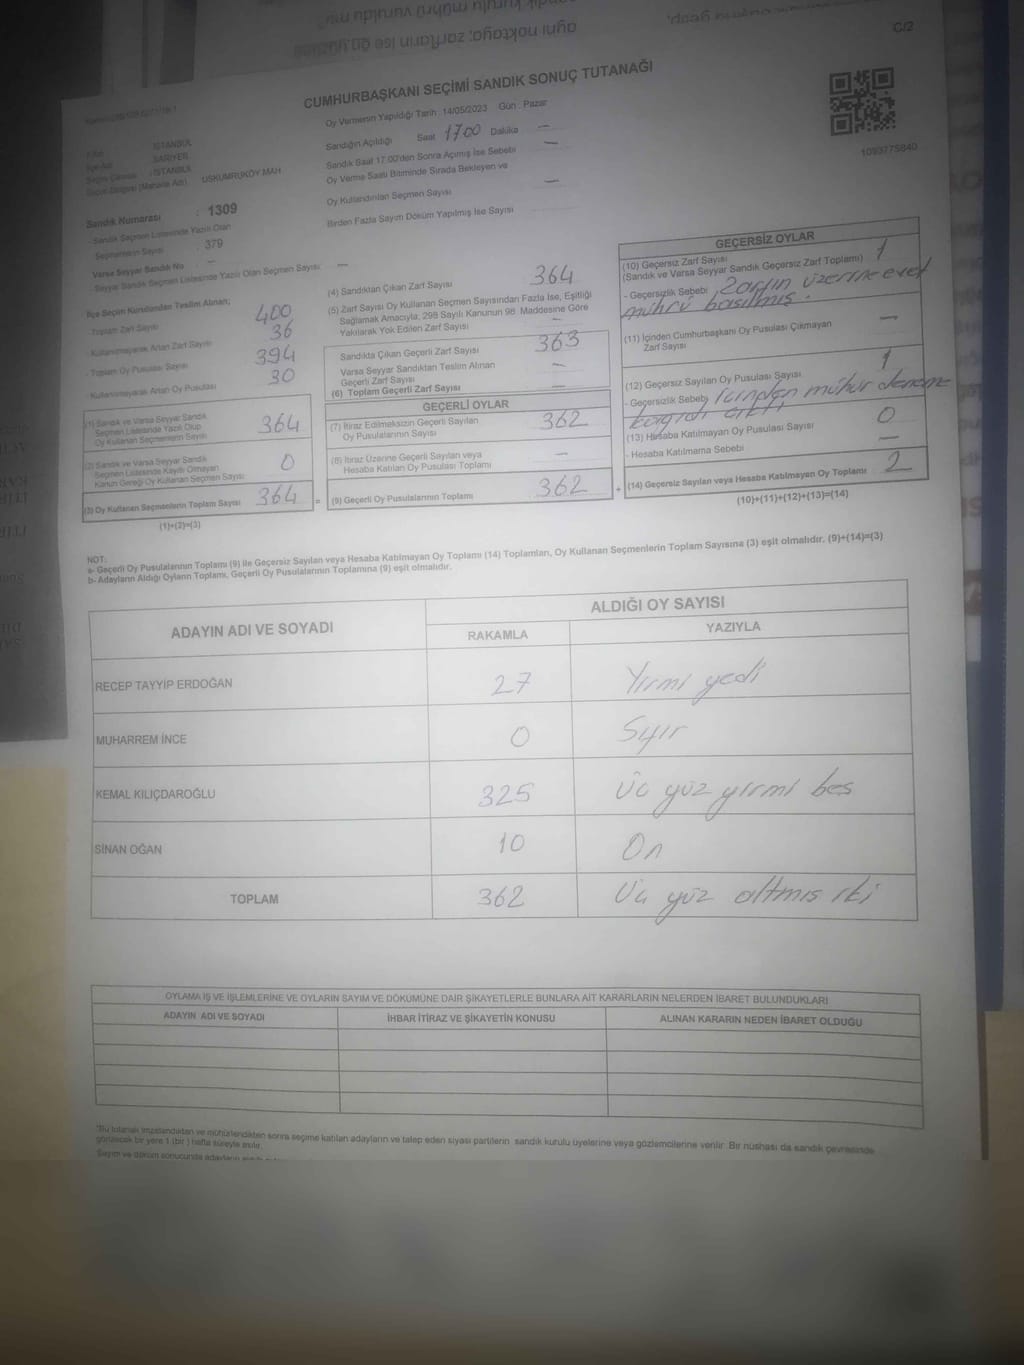 C/2
CUMHURBAŞKANI SEÇİMİ SANDIK SONUÇ TUTANAĞI
Oy Vermenin Yapıldığı Tarih : 14/05/2023 Gün : Pazar
Sandığın Açıldığı Saat 1700 Dakika —
Sandık Saat 17.00'den Sonra Açımış İse Sebebi —
Oy Verme Saati Bitiminde Sırada Bekleyen ve
Oy Kullandırılan Seçmen Sayısı —
Birden Fazla Sayım Döküm Yapılmış İse Sayısı
1093775840
İSTANBUL
SARIYER
: İSTANBUL
USKUMRUKÖY MAH
Sandık Numarası : 1309
Sandık Seçmen Listesinde Yazılı Olan
Seçmenlerin Sayısı : 379
Varsa Seyyar Sandık No —
Seyyar Sandık Seçmen Listesinde Yazılı Olan Seçmen Sayısı : —
İlçe Seçim Kurulundan Teslim Alınan;
- Toplam Zarf Sayısı 400
- Kullanılmayarak Artan Zarf Sayısı 36
- Toplam Oy Pusulası Sayısı 394
- Kullanılmayarak Artan Oy Pusulası 30
(1) Sandık ve Varsa Seyyar Sandık
Seçmen Listesinde Yazılı Olup
Oy Kullanan Seçmenlerin Sayısı 364
(2) Sandık ve Varsa Seyyar Sandık
Seçmen Listesinde Kayıtlı Olmayan
Kanun Gereği Oy Kullanan Seçmen Sayısı 0
(3) Oy Kullanan Seçmenlerin Toplam Sayısı 364 =
(1)+(2)=(3)
(4) Sandıktan Çıkan Zarf Sayısı 364
(5) Zarf Sayısı Oy Kullanan Seçmen Sayısından Fazla İse, Eşitliği
Sağlamak Amacıyla, 298 Sayılı Kanunun 98. Maddesine Göre
Yakılarak Yok Edilen Zarf Sayısı —
Sandıkta Çıkan Geçerli Zarf Sayısı 363
Varsa Seyyar Sandıktan Teslim Alınan
Geçerli Zarf Sayısı —
(6) Toplam Geçerli Zarf Sayısı —
GEÇERLİ OYLAR
(7) İtiraz Edilmeksizin Geçerli Sayılan
Oy Pusulalarının Sayısı 362
(8) İtiraz Üzerine Geçerli Sayılan veya
Hesaba Katılan Oy Pusulası Toplamı —
(9) Geçerli Oy Pusulalarının Toplamı 362 +
GEÇERSİZ OYLAR
(10) Geçersiz Zarf Sayısı
(Sandık ve Varsa Seyyar Sandık Geçersiz Zarf Toplamı) 1
- Geçersizlik Sebebi Zarfın üzerine evet
mührü basılmış.
(11) İçinden Cumhurbaşkanı Oy Pusulası Çıkmayan
Zarf Sayısı —
(12) Geçersiz Sayılan Oy Pusulası Sayısı 1
- Geçersizlik Sebebi İçinden mühür deneme
kağıdı çıktı
(13) Hesaba Katılmayan Oy Pusulası Sayısı 0
- Hesaba Katılmama Sebebi —
(14) Geçersiz Sayılan veya Hesaba Katılmayan Oy Toplamı 2
(10)+(11)+(12)+(13)=(14)
NOT:
a- Geçerli Oy Pusulalarının Toplamı (9) ile Geçersiz Sayılan veya Hesaba Katılmayan Oy Toplamı (14) Toplamları, Oy Kullanan Seçmenlerin Toplam Sayısına (3) eşit olmalıdır. (9)+(14)=(3)
b- Adayların Aldığı Oyların Toplamı, Geçerli Oy Pusulalarının Toplamına (9) eşit olmalıdır.
ADAYIN ADI VE SOYADI ALDIĞI OY SAYISI
RAKAMLA YAZIYLA
RECEP TAYYİP ERDOĞAN 27 Yirmi yedi
MUHARREM İNCE 0 Sıfır
KEMAL KILIÇDAROĞLU 325 Üç yüz yirmi beş
SİNAN OĞAN 10 On
TOPLAM 362 Üç yüz altmış iki
OYLAMA İŞ VE İŞLEMLERİNE VE OYLARIN SAYIM VE DÖKÜMÜNE DAİR ŞİKAYETLERLE BUNLARA AİT KARARLARIN NELERDEN İBARET BULUNDUKLARI
ADAYIN ADI VE SOYADI İHBAR İTİRAZ VE ŞİKAYETİN KONUSU ALINAN KARARIN NEDEN İBARET OLDUĞU
*Bu tutanak imzalandıktan ve mühürlendikten sonra seçime katılan adayların ve talep eden siyasi partilerin sandık kurulu üyelerine veya gözlemcilerine verilir. Bir nüshası da sandık çevresinde
görülecek bir yere 1 (bir) hafta süreyle asılır.
Sayım ve döküm sonucunda adayların